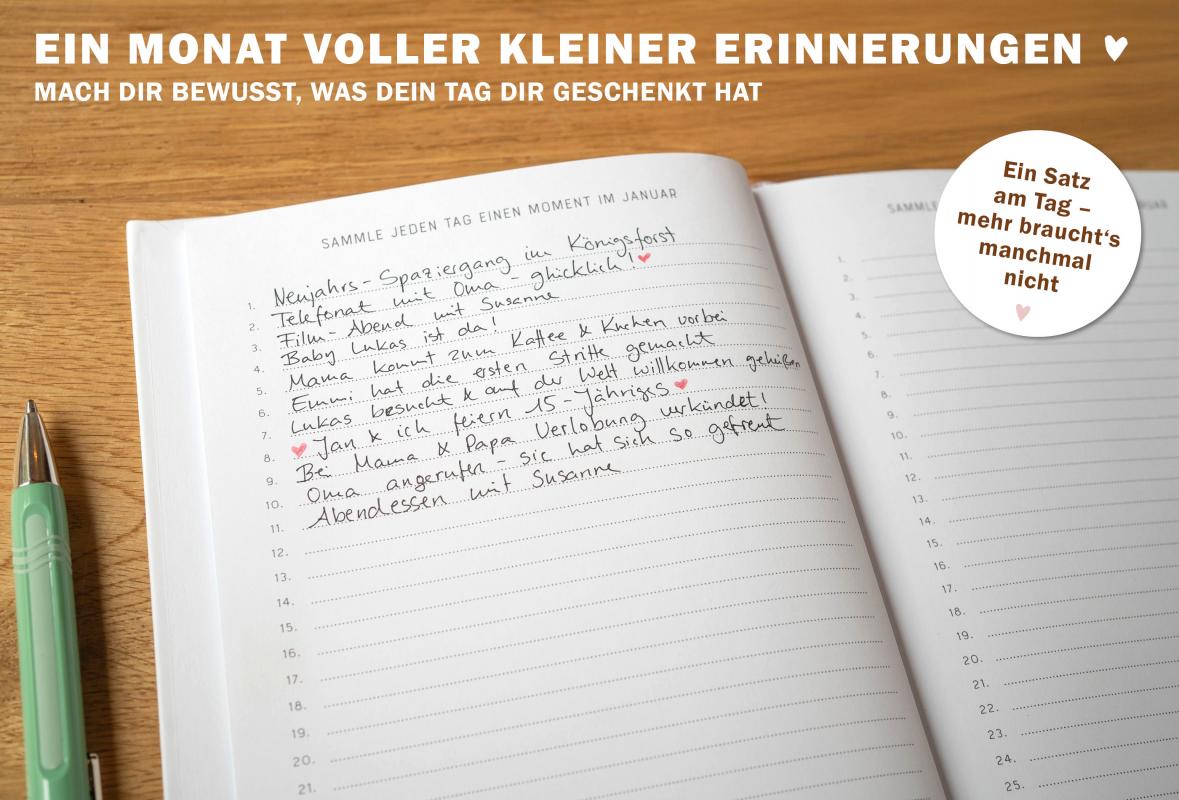 EIN MONAT VOLLER KLEINER ERINNERUNGEN
MACH DIR BEWUSST, WAS DEIN TAG DIR GESCHENKT HAT
Ein Satz
am Tag –
mehr braucht‘s
manchmal
nicht
SAMMLE JEDEN TAG EINEN MOMENT IM JANUAR
1. Neujahrs-Spaziergang im Königsforst
2. Telefonat mit Oma - glücklich!
3. Film-Abend mit Susanne
4. Baby Lukas ist da!
5. Mama kommt zum Kaffee & Kuchen vorbei
6. Emmi hat die ersten Stritte gemacht
7. Lukas besucht & auf der Welt willkommen geheißen
8. Jan & ich feiern 15-Jähriges
9. Bei Mama & Papa Verlobung verkündet!
10. Oma angerufen - sie hat sich so gefreut
11. Abendessen mit Susanne
12.
13.
14.
15.
16.
17.
18.
19.
20.
21.
SAMMLE
1.
2.
3.
4.
5.
6.
7.
8.
9.
10.
11.
12.
13.
14.
15.
16.
17.
18.
19.
20.
21.
22.
23.
24.
25.